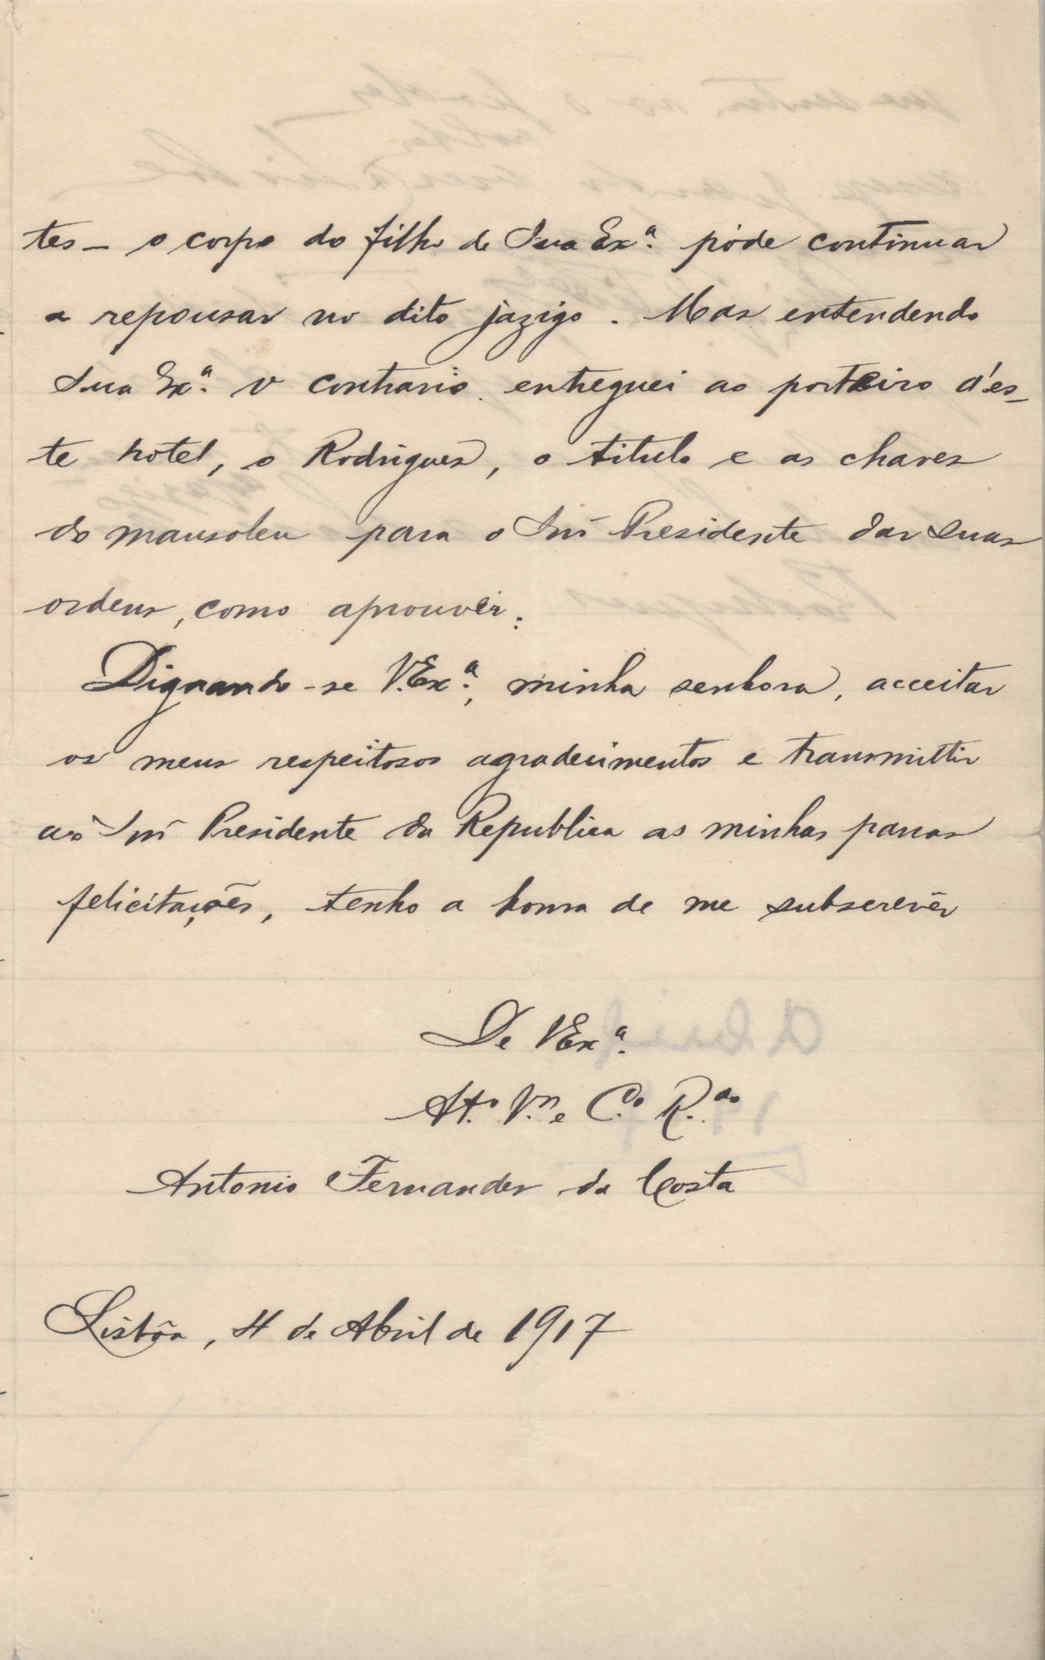 tes – o corpo do filho de Sua Exª. póde continuar
a repousar no dito jazigo. Mas entendendo
Sua Exª. o contrario entreguei ao porteiro d'es-
te hotel, o Rodrigues, o titulo e as chaves
do mausoleu para o Snr Presidente dar suas
ordens, como aprouvér.
Dignando-se V. Exª., minha senhora, acceitar
os meus respeitosos agradecimentos e transmittir
ao Snr Presidente da Republica as minhas
felicitações, tenho a honra de me subscrevêr
De V Exª.
Att.º V.or e C.º R.do
Antonio Fernandes da Costa
Lisbôa, 4 de Abril de 1917